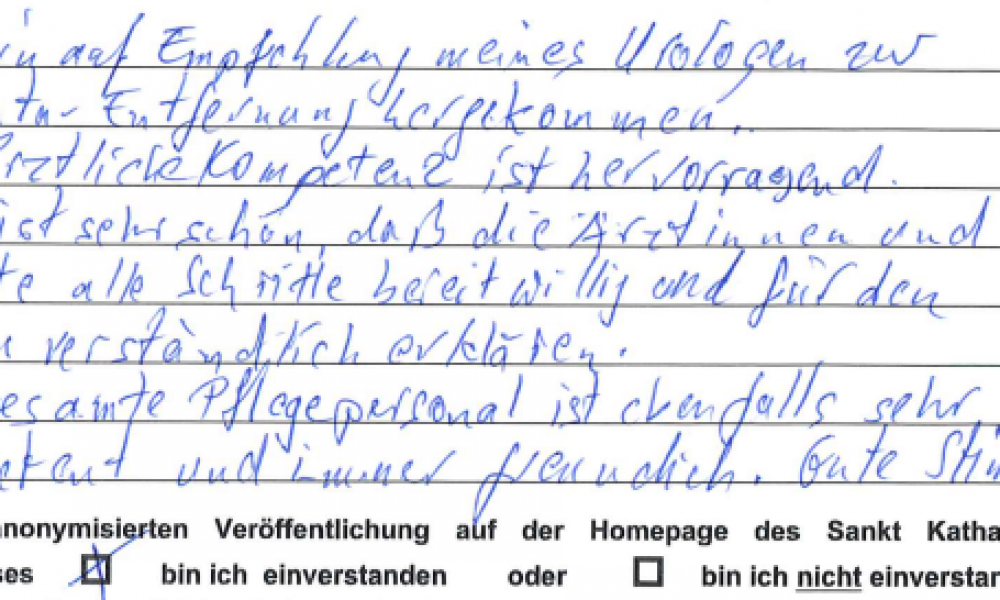 auf Empfehlung meines Urologen zur
Entfernung hergekommen.
ärztliche Kompetenz ist hervorragend.
ist sehr schön, daß die Ärztinnen und
te alle Schritte bereitwillig und für den
verständlich erklären.
esamte Pflegepersonal ist ebenfalls sehr
etent und immer freundlich. Gute Stim
anonymisierten Veröffentlichung auf der Homepage des Sankt Katha
ses bin ich einverstanden oder bin ich nicht einverstan